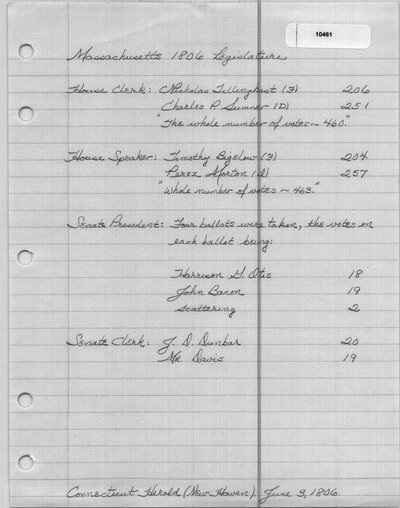 10461
Massachusetts 1806 Legislature
House Clerk: Nicholas Tillinghast (F) 206
Charles P. Sumner (D) 251
"The whole number of votes ~ 460."
House Speaker: Timothy Bigelow (F) 204
Perez Morton (D) 257
"Whole number of votes ~ 463."
Senate President: Four ballots were taken, the votes on
each ballot being:
Harrison G. Otis 18
John Bacon 19
scattering 2
Senate Clerk: J. D. Dunbar 20
Mr. Davis 19
Connecticut Herald (New Haven). June 3, 1806.